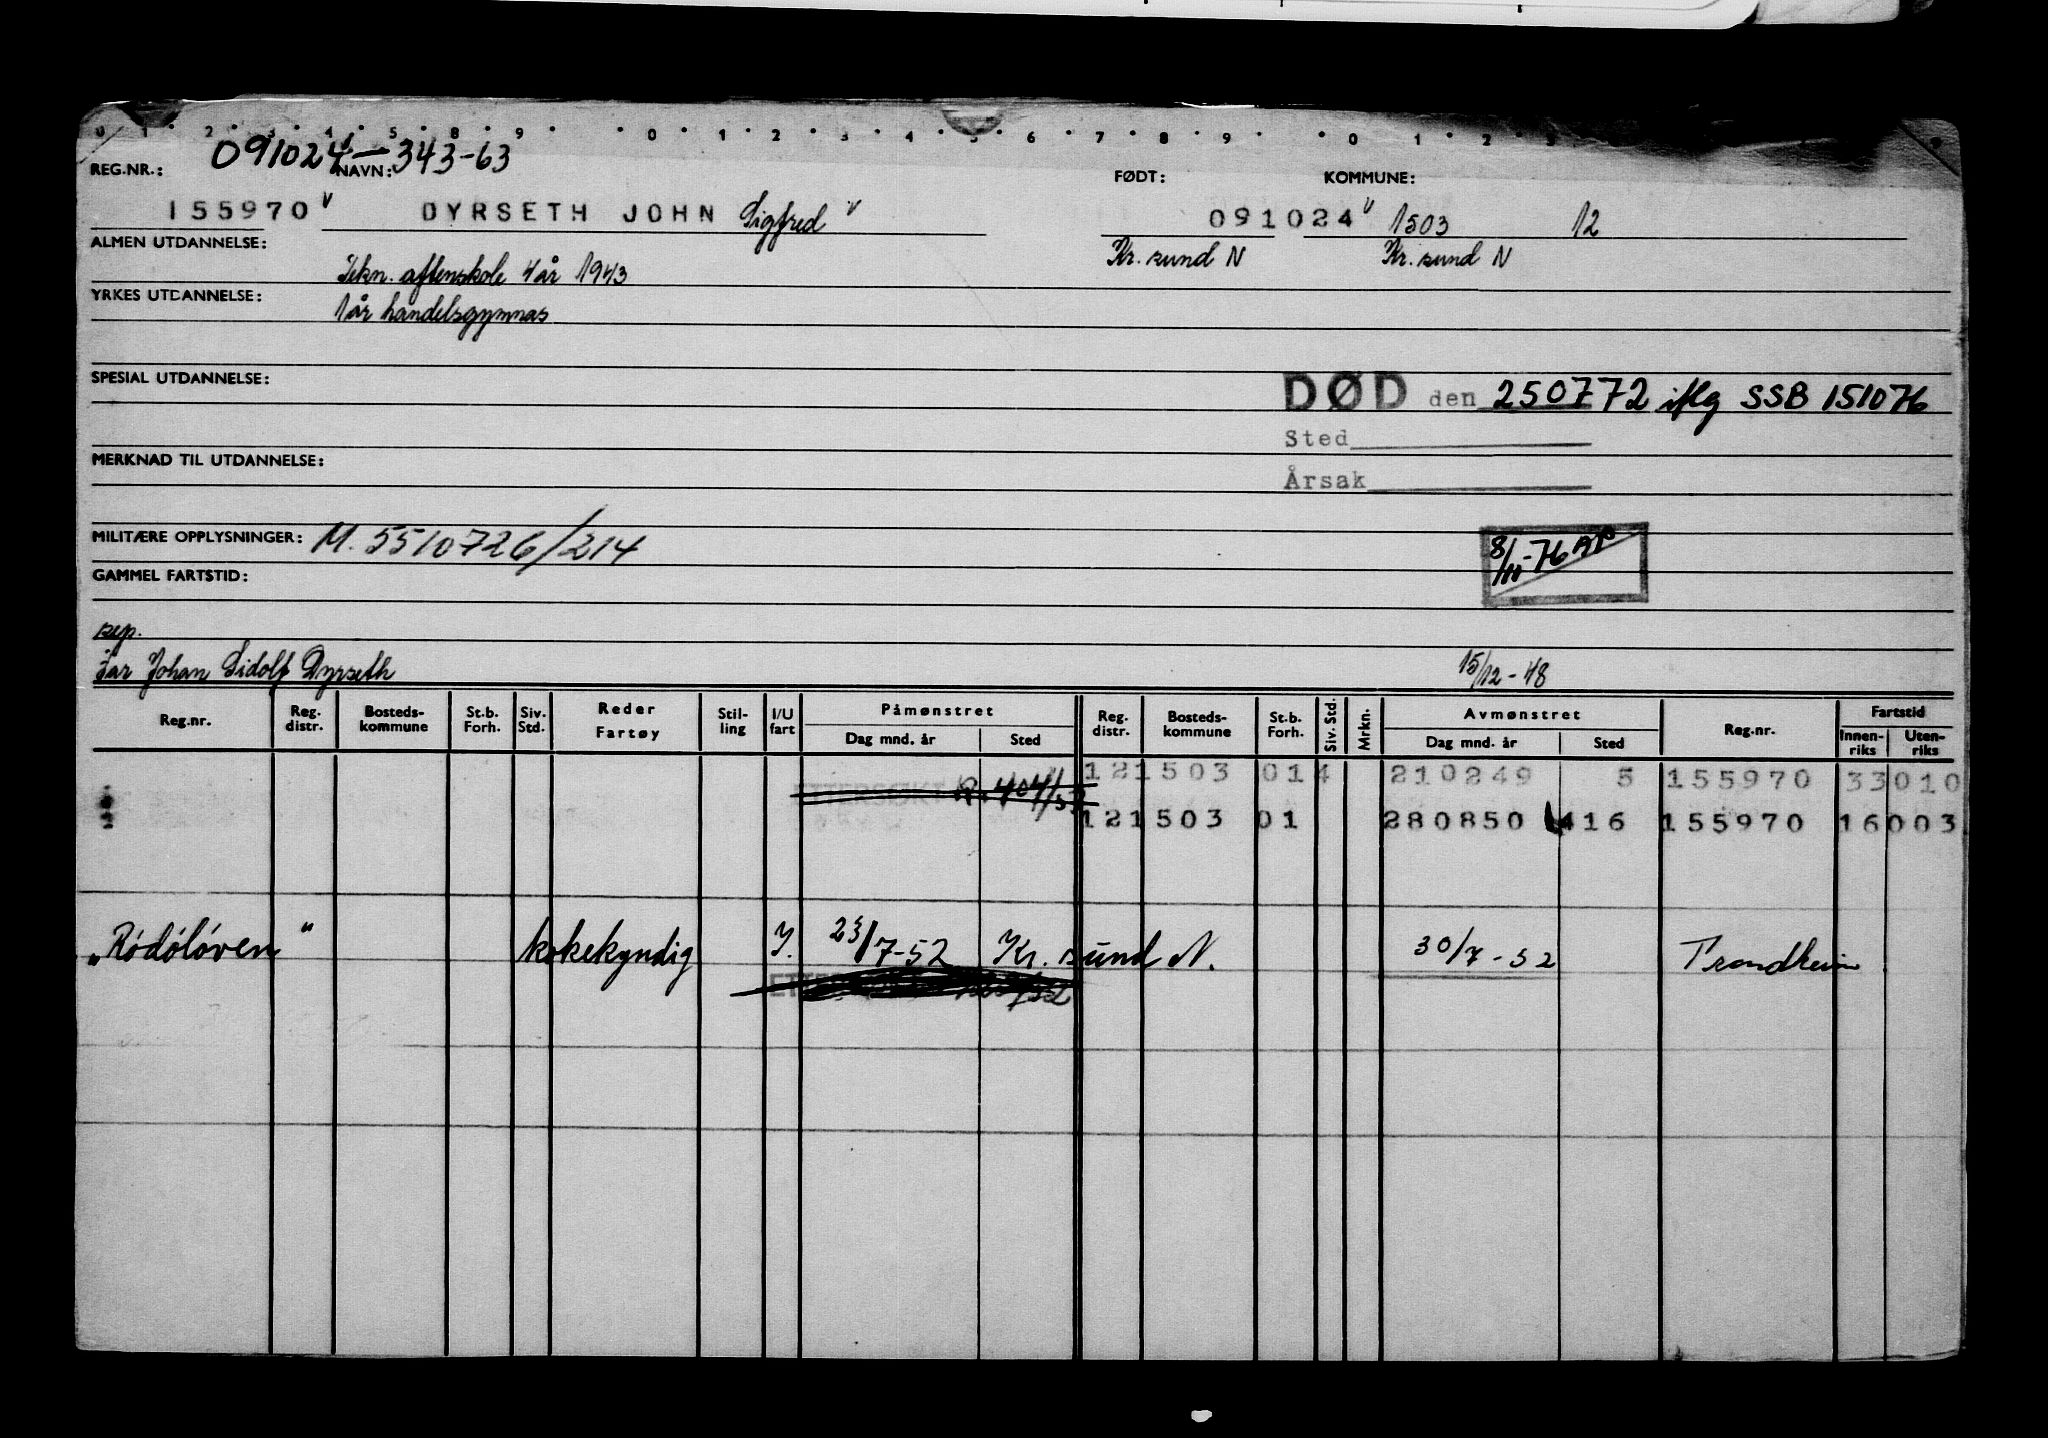 0 1 2 3 4 5 8 9 0 1 2 3 4 5 6 7 8 9 0 1 2
091024-343-63
REG.NR.: NAVN: FØDT: KOMMUNE:
155970 DYRSETH JOHN Sigfred 091024 1503 12
ALMEN UTDANNELSE: Tekn. aftenskole 4 år 1943 Kr. sund N Kr. sund N
YRKES UTDANNELSE: 1 år handelsgymnas
SPESIAL UTDANNELSE:
DØD den 250772 iflg SSB 151076
Sted
MERKNAD TIL UTDANNELSE:
Årsak
MILITÆRE OPPLYSNINGER: M. 5510726/214
8/11-76
GAMMEL FARTSTID:
sep.
Far Johan Sidolf Dyrseth 15/12-48
Reg.nr. Reg. distr. Bosteds- kommune St.b. Forh. Siv. Std. Reder Fartøy Stil- ling I/U fart Påmønstret Dag mnd. år Sted Reg. distr. Bosteds- kommune St.b. Forh. Siv. Std. Mrkn. Avmønstret Dag mnd. år Sted Reg.nr. Fartstid Innen- riks Uten- riks
121503 014 210249 5 155970 33010
121503 01 280850 416 155970 16003
"Rödölöven" kokekyndig I. 23/7-52 Kr. sund N. 30/7-52 Trondheim